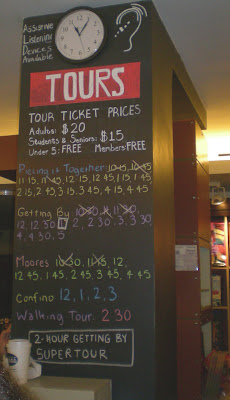 Assistive
Listening
Devices
Available
TOURS
TOUR TICKET PRICES
Adults: $20
Students & Seniors: $15
Under 5: FREE Members: FREE
Piecing it Together 10.45, 10.45
11.15, 11.45, 12.15, 12.45, 1.15, 1.45
2.15, 2.45, 3.15, 3.45, 4.15, 4.45
Getting By 10.30, 11, 11.30,
12, 12.30, 1, 2, 2.30, 3, 3.30,
4, 4.30, 5
Moores 10.30, 11.45, 12,
12.45, 1.45, 2.45, 3.45, 4.45
Confino 12, 1, 2, 3
Walking Tour. 2.30
2-HOUR GETTING BY
SUPERTOUR